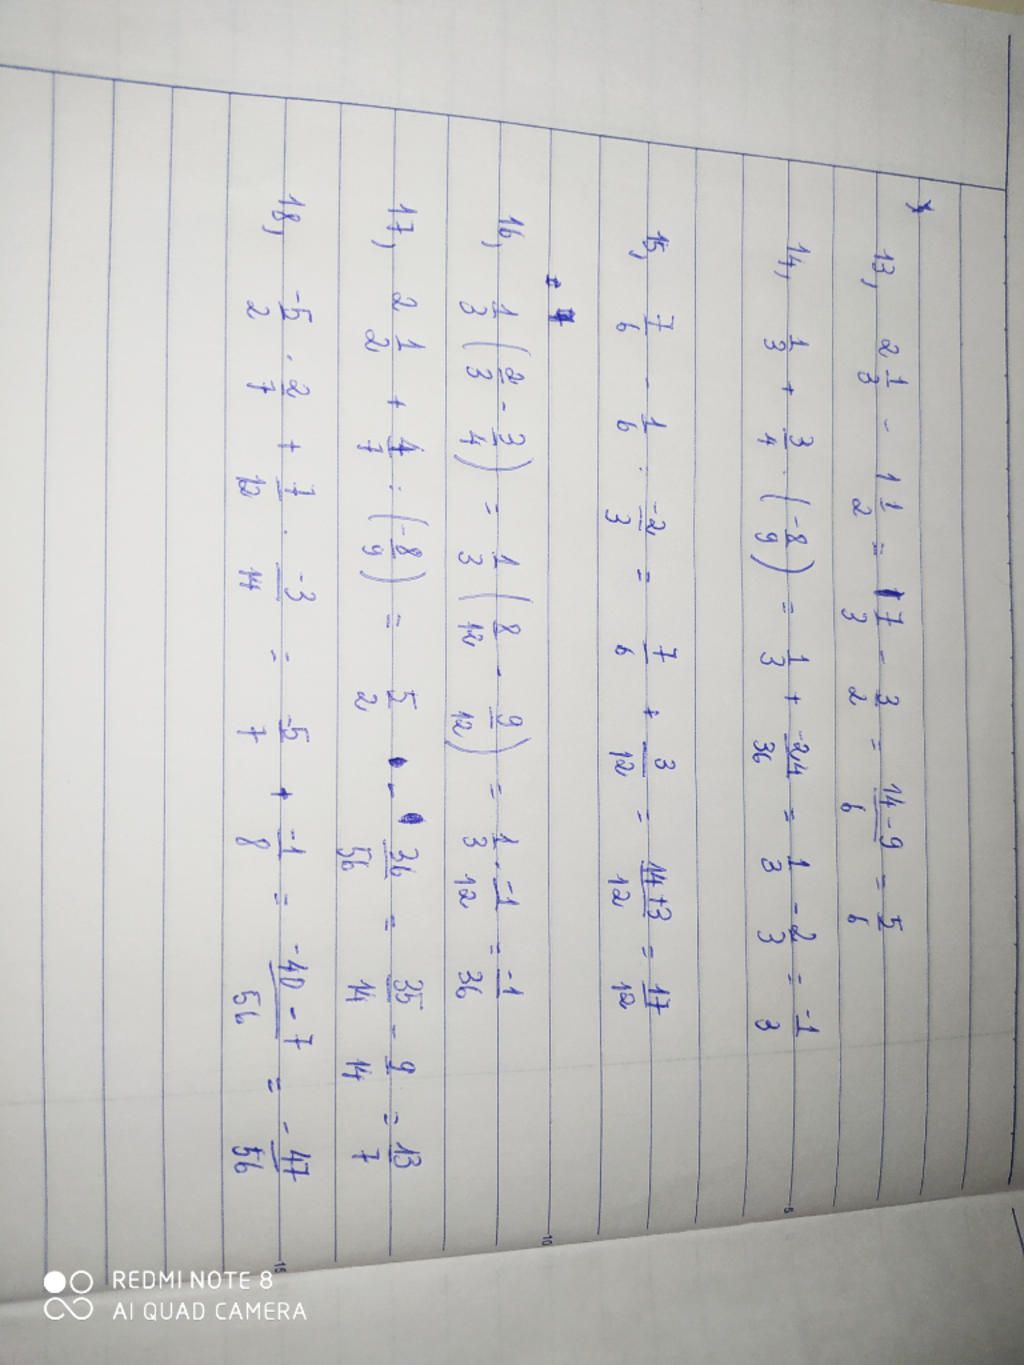 13, 2 1/3 - 1 1/2 = 7/3 - 3/2 = 14-9/6 = 5/6
14, 1/3 + 3/4 . (-8/9) = 1/3 + -24/36 = 1/3 - 2/3 = -1/3
15, 7/6 - 1/6 : -2/3 = 7/6 + 3/12 = 14+3/12 = 17/12
16, 1/3 (2/3 - 3/4) = 1/3 (8/12 - 9/12) = 1/3 . -1/12 = -1/36
17, 2 1/2 + 4/7 : (-8/9) = 5/2 - 36/56 = 35/14 - 9/14 = 13/7
18, -5/2 . 2/7 + 7/12 . -3/14 = -5/7 + -1/8 = -40-7/56 = -47/56
5
10
15
REDMI NOTE 8
AI QUAD CAMERA